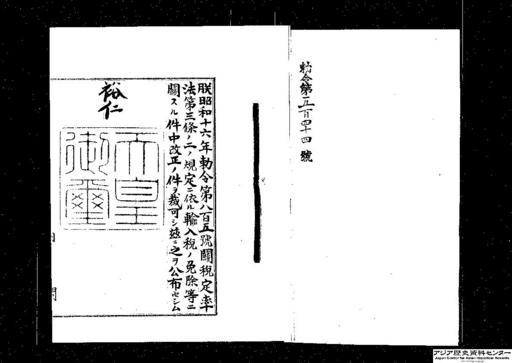 勅令第二百四十四號
朕昭和十六年勅令第八百五號關稅定率
法第三條ノ二ノ規定ニ依ル輸入稅ノ免除等ニ
關スル件中改正ノ件ヲ裁可シ玆ニ之ヲ公布セシム
裕仁
天皇
御璽
アジア歴史資料センター
Japan Center for Asian Historical Records